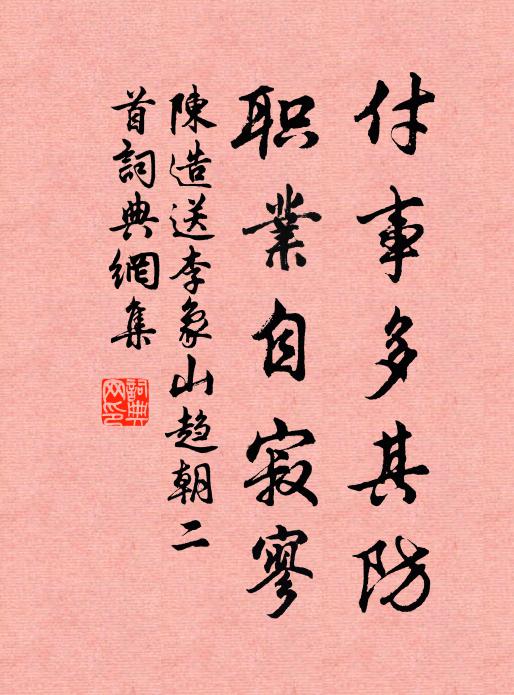 付事多其防
职業自寂寥
陳造送李象山趋朝二
首詞典網集
詞典
网印